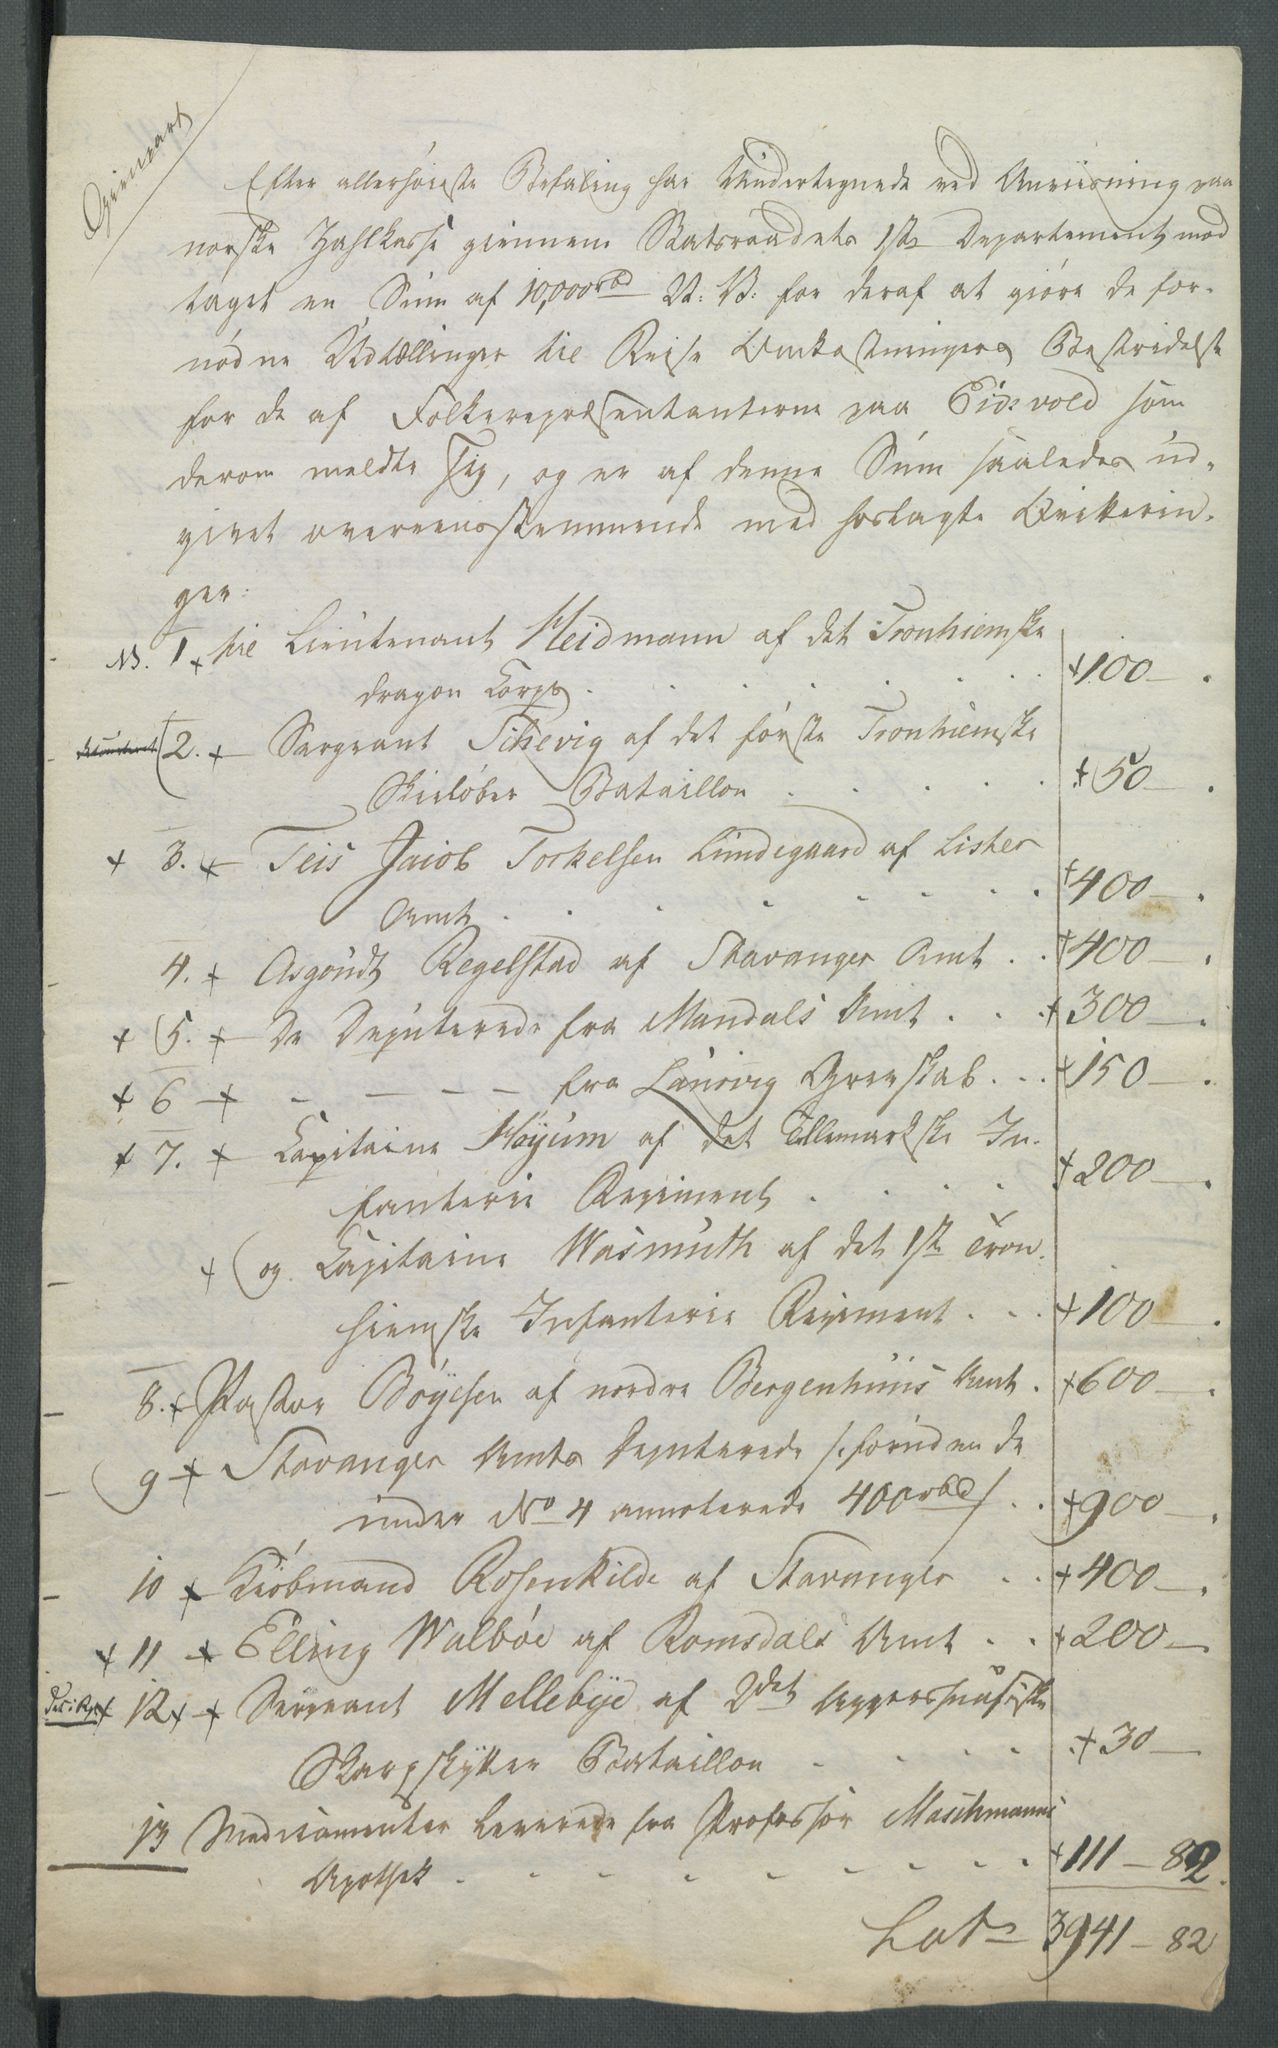 Gienpart
Efter allerhöieste Befaling har Undertegnede ved Anviisning paa
norske Zahlkasse giennem Statsraadets 1ste Departement mod
taget en Sum af 10,000 rbd N: V: for deraf at giöre de for-
nödne Udtællinger til Reise Omkostningers Bestridelse
for de af Folkerepræsentanterne paa Eidsvold som
derom meldte sig, og er af denne Sum saaledes ud-
givet overeensstemmende med hoslagte Qvitterin-
ger:
N. 1 til Lieutenant Heidmann af det Tronhiemske
Dragon Corps . . . . . . 100 -
2. - Sergeant Schevig af det förste Tronhiemske
Skielöber Bataillon . . . . . 50 -
3. - Teis Jacob Torkelsen Lundegaard af Lister
Amt . . . . . . 400 -
4. Asgoudt Regelstad af Stavanger Amt . . 400 -
5. - De Deputerede fra Mandals Amt . . . 300 -
6 - - - - fra Laurvig Grevskab . . . 150 -
7. - Capitaine Höyum af det Tellemarkske In-
fanterie Regiment . . . . 200 -
og Capitaine Wasmuth af det 1ste Tron-
hiemske Infanterie Regiment . . . 100 -
8. Pastor Böyesen af nordre Bergenhuus Amt . 600 -
9 - Stavanger Amts Deputerede /: foruden de
under No 4 annoterede 400 rbd / . . 900 -
10 - Kiöbmand Rosenkilde af Stavanger . . 400 -
11 - Elling Walböe af Romsdals Amt . . 200 -
12 - Sergeant Mellebye af 2det Aggershuusiske
Skarpskytter Bataillon . . . . 30 -
13 Medicamenter leverede fra Professor Maschmanns
Apothek . . . . . . . . 111 - 82.
Lats 3941 - 82